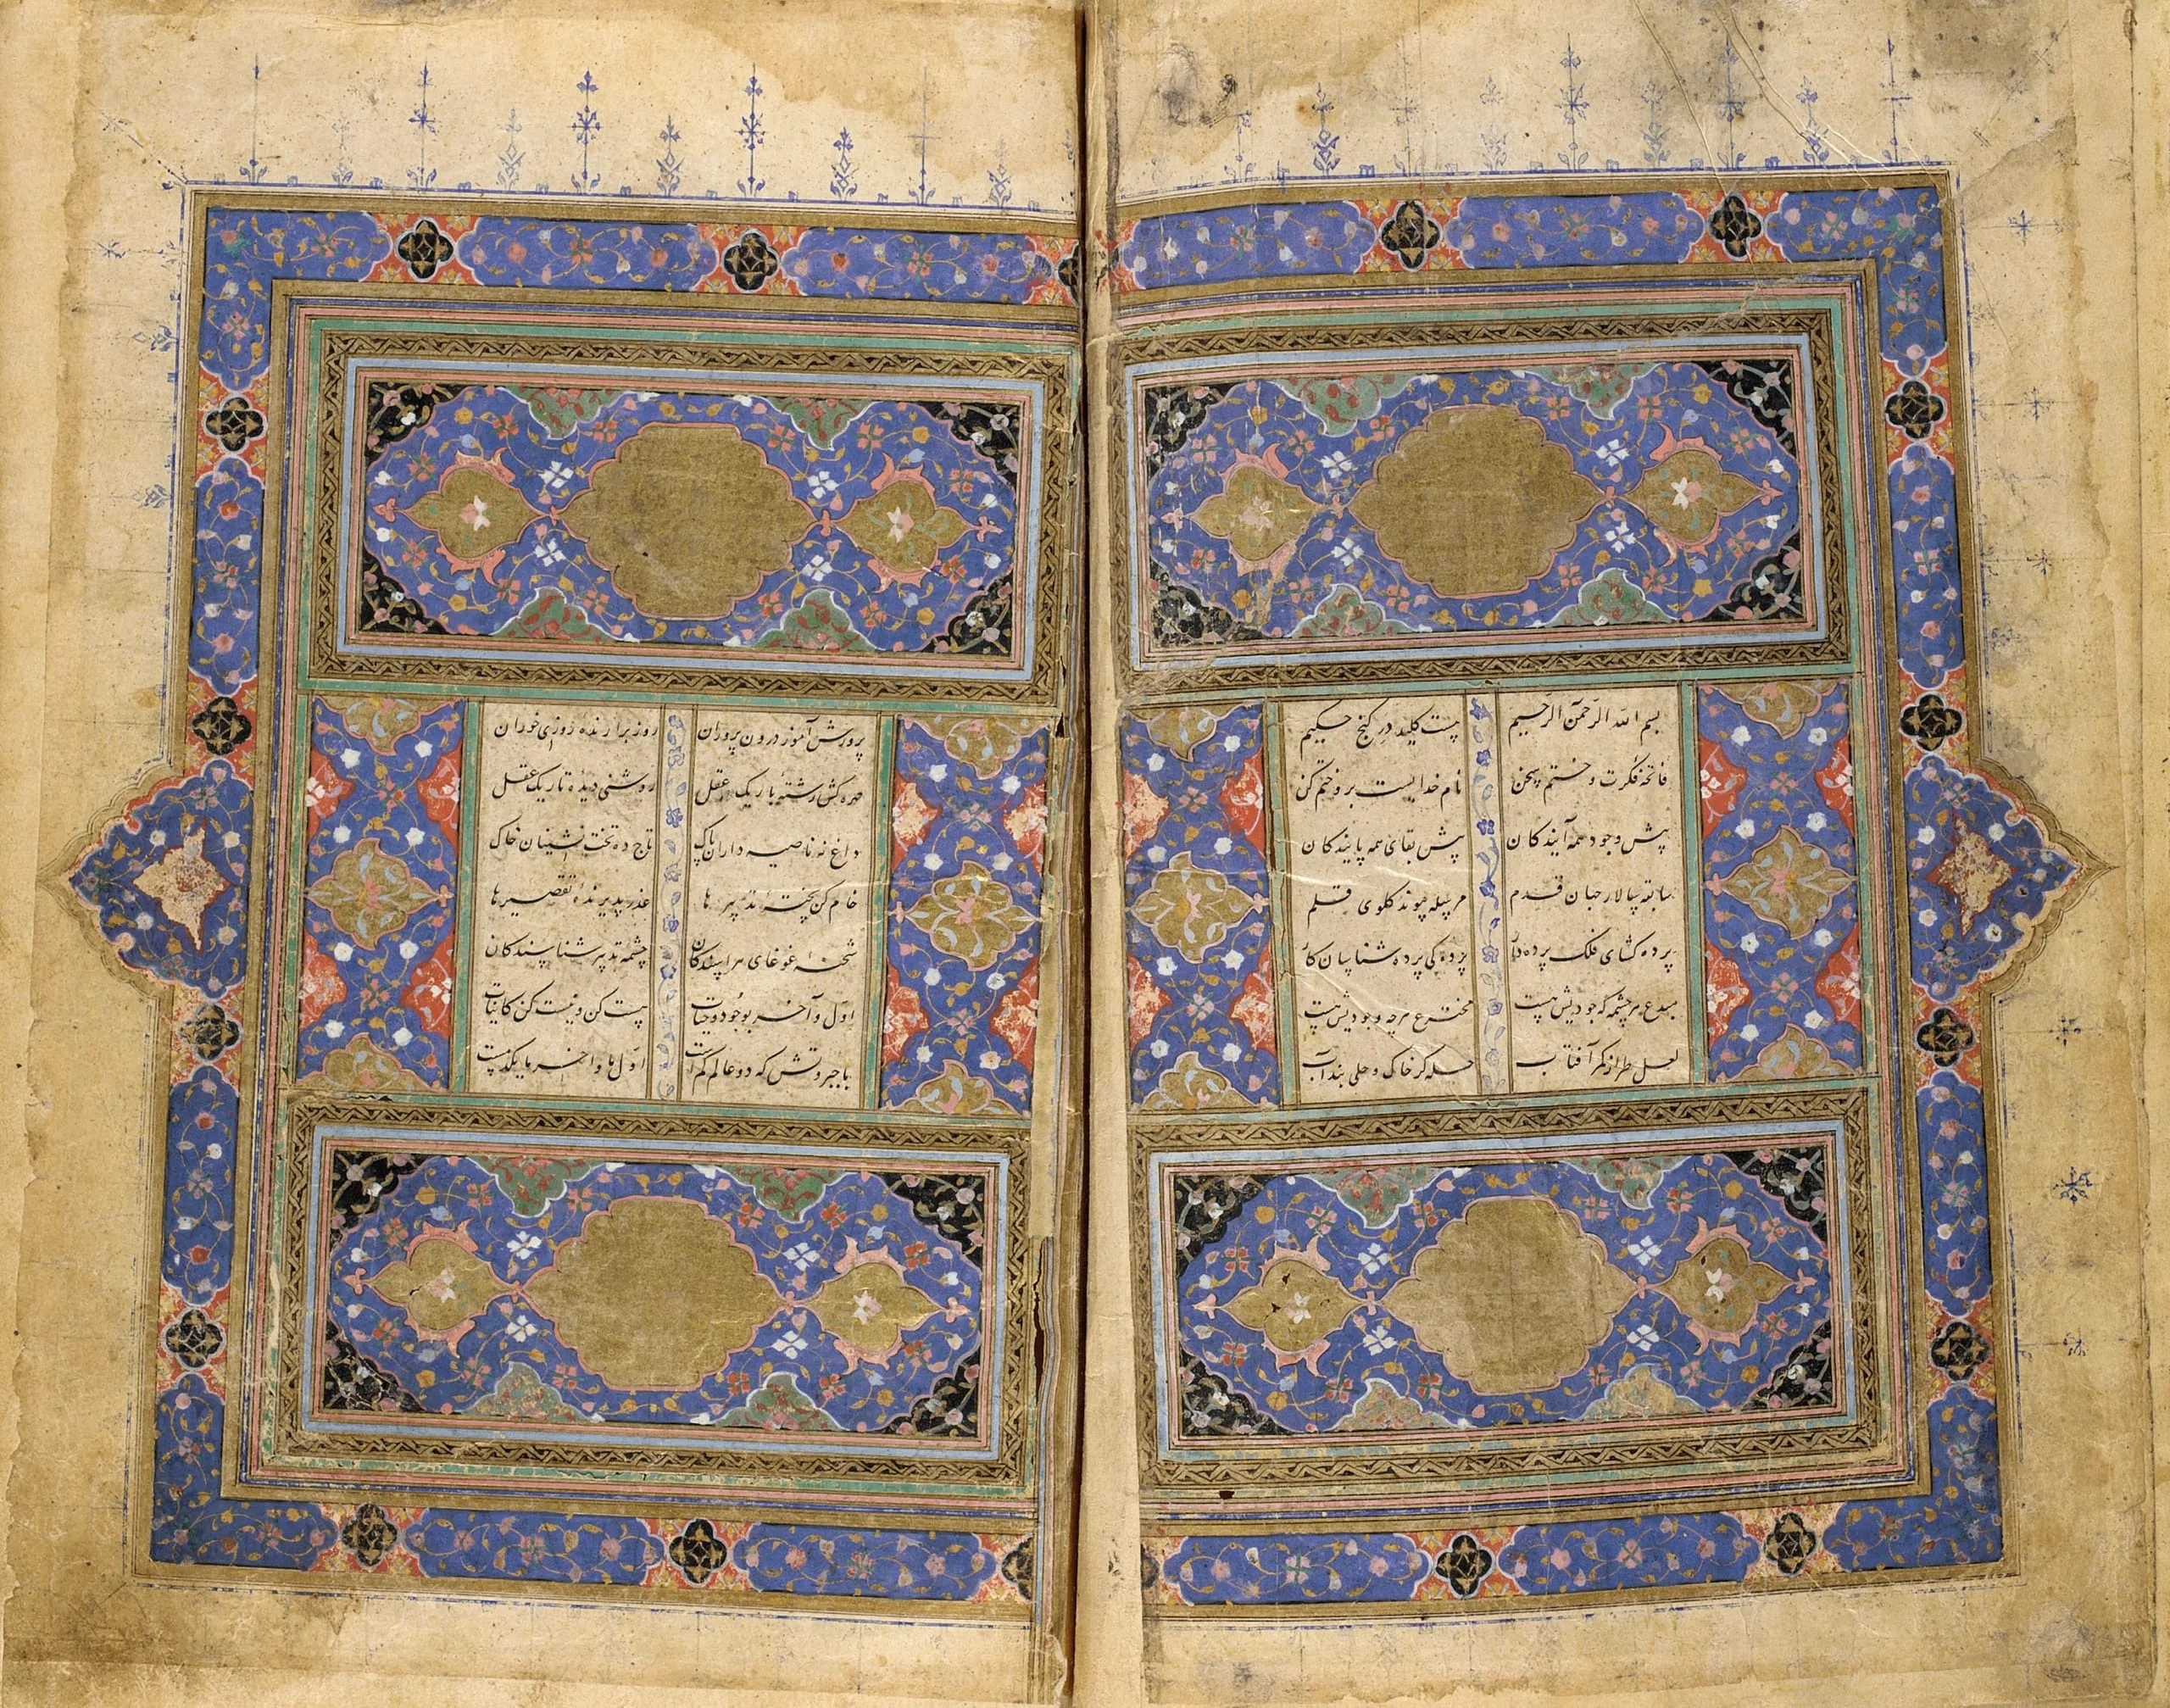 بسم الله الرحمن الرحیم هست کلید در کنج حکیم
فاتحه فکرت و ختم سخن نام خدایست بر و ختم کن
پیش وجود همه آیندکان پیش بقای همه پایندکان
سابقه سالار جهان قدم مرسله پیوند کلوی قلم
پرده کشای فلک پرده دار پردکی پرده شناسان کار
مبدع هر چشمه که جودیش هست مخترع هرچه وجودیش هست
لعل طراز کمر آفتاب حله کر خاک و حلی بند آب
پرورش آموز درون پروران روز برارنده روزی خوران
مهره کش رشته باریک عقل روشنی دیده تاریک عقل
داغ نه ناصیه داران پاک تاج ده تخت نشینان خاک
خام کن پخته تدبیر ها عذر پذیرنده تقصیر ها
شحنه غوغای هراسندکان چشمه تدبیر شناسندکان
اول و آخر بوجود و حیات هست کن و نیست کن کاینات
با جبروتش که دو عالم کمست اول ما و اخر ما یکدمست